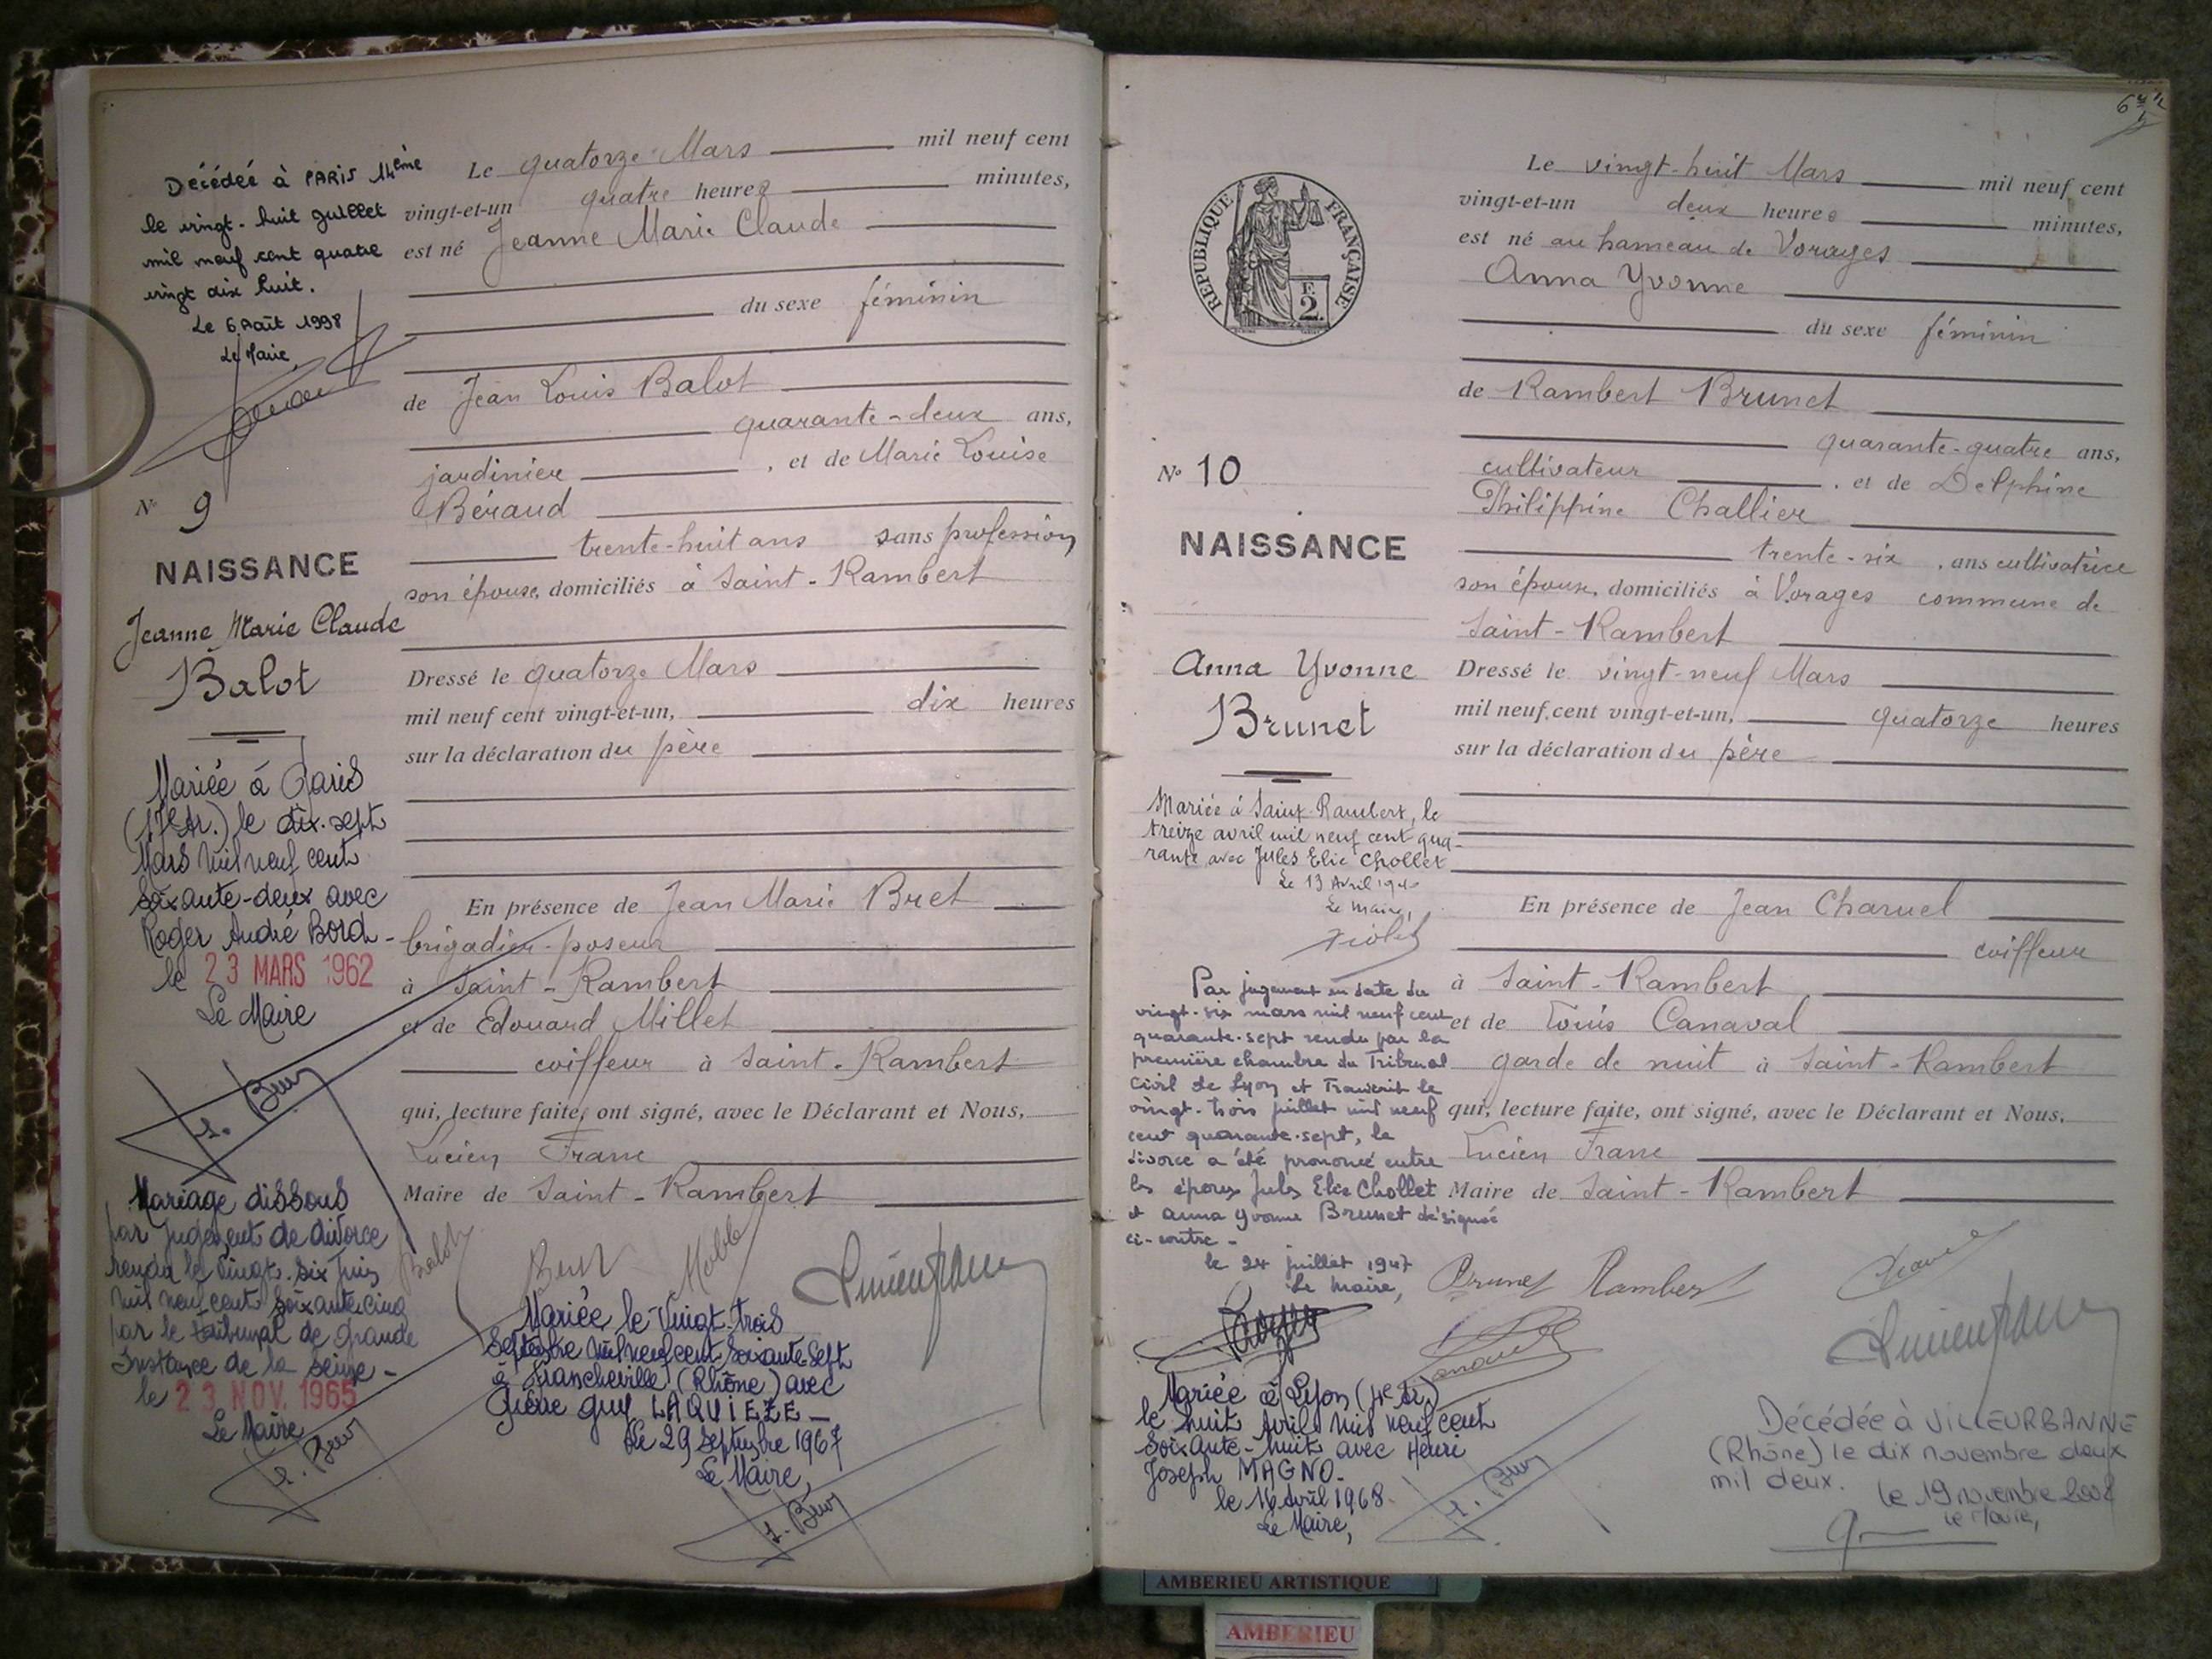 Décédée à PARIS 14ème
le vingt-huit juillet
mil neuf cent quatre
vingt dix huit.
Le 6 Août 1998
Le Maire,
N° 9
NAISSANCE
Jeanne Marie Claude
Balot
Mariée à Paris
(17e Ar.) le dix-sept
Mars mil neuf cent
soixante-deux avec
Roger André Bord -
le 23 MARS 1962
Le Maire
Mariage dissous
par jugement de divorce
rendu le vingt-six juin
mil neuf cent soixante cinq
par le tribunal de grande
instance de la Seine -
le 23 NOV. 1965
Le Maire
Le quatorze Mars mil neuf cent
vingt-et-un quatre heures minutes,
est né Jeanne Marie Claude
du sexe féminin
de Jean Louis Balot
quarante-deux ans,
jardinier , et de Marie Louise
Béraud
trente-huit ans sans profession
son épouse, domiciliés à Saint-Rambert
Dressé le quatorze Mars
mil neuf cent vingt-et-un, dix heures
sur la déclaration du père
En présence de Jean Marie Bret
brigadier-poseur
à Saint-Rambert
et de Edouard Millet
coiffeur à Saint-Rambert
qui, lecture faite, ont signé, avec le Déclarant et Nous,
Lucien Franc
Maire de Saint-Rambert
Balot
Lucien Franc
Mariée le vingt-trois
septembre mil neuf cent soixante sept
à Francheville (Rhône) avec
guy LAQUIEZE -
Le 29 septembre 1967
Le Maire,
RÉPUBLIQUE FRANÇAISE
F.
2.
N° 10
NAISSANCE
Anna Yvonne
Brunet
Mariée à Saint-Rambert, le
treize avril mil neuf cent qua-
rante avec Jules Elie Chollet
Le 13 Avril 194
Le Maire,
Par jugement en date du
vingt-six mars mil neuf cent
quarante-sept rendu par la
première chambre du Tribunal
Civil de Lyon et Transcrit le
vingt-trois juillet mil neuf
cent quarante-sept, le
divorce a été prononcé entre
les époux Jules Elie Chollet
et Anna Yvonne Brunet désignée
ci-contre -
le 24 juillet 1947
Le Maire,
Mariée à Lyon (4e Ar)
le huit Avril mil neuf cent
soixante-huit avec Henri
Joseph MAGNO -
le 16 Avril 1968
Le Maire,
Le vingt-huit Mars mil neuf cent
vingt-et-un deux heures minutes,
est né au hameau de Vorages
Anna Yvonne
du sexe féminin
de Rambert Brunet
quarante-quatre ans,
cultivateur , et de Delphine
Philippine Challier
trente-six , ans cultivatrice
son épouse, domiciliés à Vorages commune de
Saint-Rambert
Dressé le vingt-neuf Mars
mil neuf cent vingt-et-un, quatorze heures
sur la déclaration du père
En présence de Jean Charuel
coiffeur
à Saint-Rambert
et de Louis Canaval
garde de nuit à Saint-Rambert
qui, lecture faite, ont signé, avec le Déclarant et Nous,
Lucien Franc
Maire de Saint-Rambert
Brunet Rambert
Lucien Franc
Décédée à VILLEURBANNE
(Rhône) le dix novembre deux
mil deux. Le 19 novembre 2002
Le Maire,
AMBERIEU ARTISTIQUE
AMBERIEU